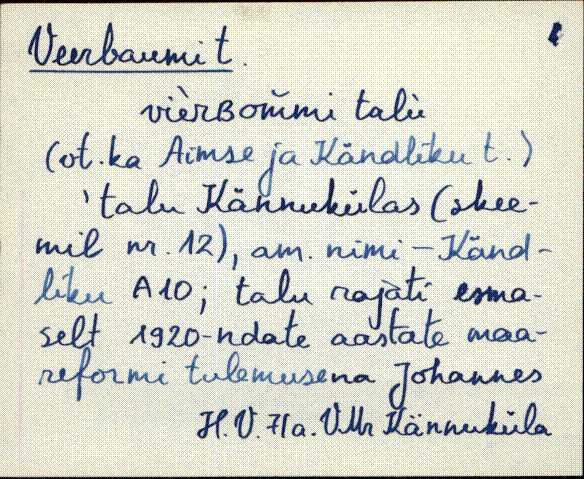 Veerbaumi t.
vièrʙom̆mi talù
(vt. ka Aimse ja Kändliku t.)
'talu Kännukülas (skee-
mil nr. 12), am. nimi – Känd-
liku A10; talu rajati esma-
selt 1920-ndate aastate maa-
reformi tulemusena Johannes
H.V. 71a. VMr Kännuküla